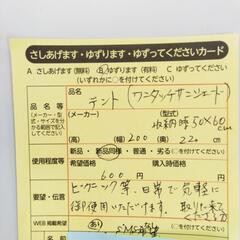 さしあげます・ゆずります・ゆずってくださいカード
A さしあげます(無料) B ゆずります(有料) C ゆずってください
(いずれかに○を付けてください)
品名等
(メーカー・型
式・サイズを分
かる範囲で記入
してください)
(品名)
テント(ワンタッチサンシェード)
(メーカー)
(型式)
収納時50×60cm
(高さ)
(幅) 200
22cm
使用程度等
新品・新品同様・普通・劣る(
希望価格
購入時価格
600円
要望・伝言
ピクニック等、日常で気軽に
御使用いただけます。取りに来て
くださる方
WEB掲載希望
あり
SMS希望